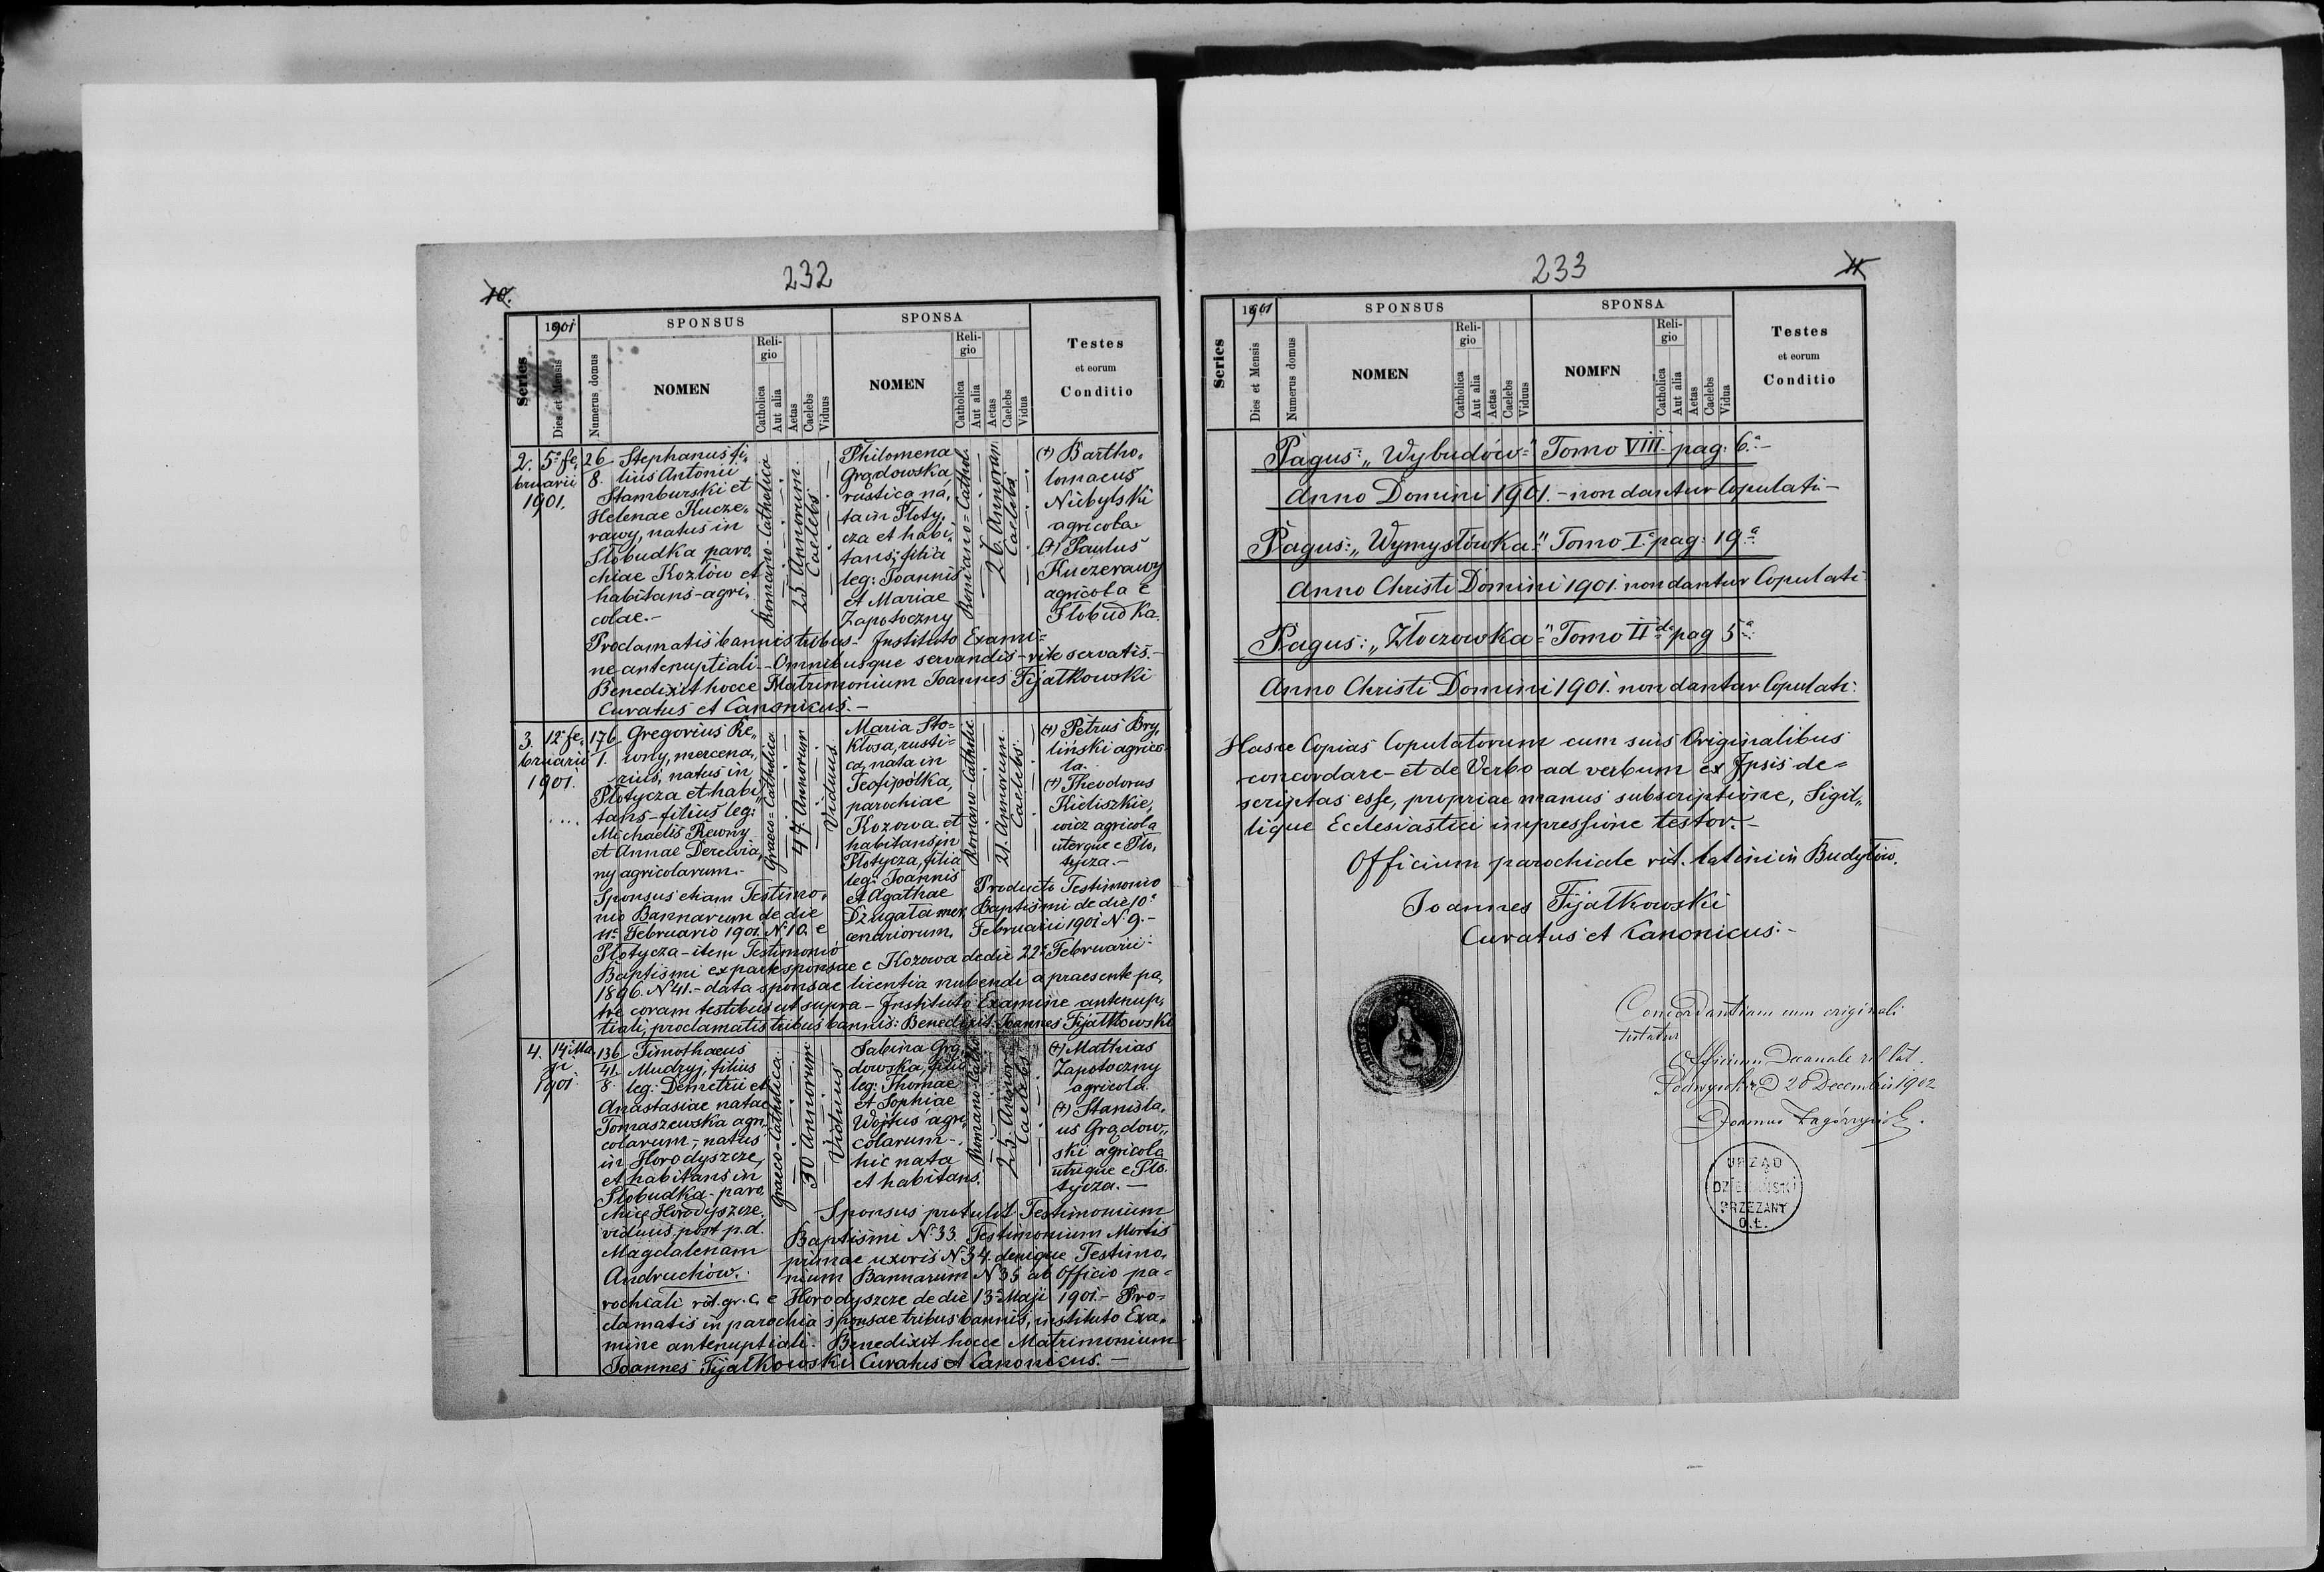 232
10.
1901
SPONSUS
SPONSA
Series
Dies et Mensis
Numerus domus
NOMEN
Reli-
gio
Catholica
Aut alia
Aetas
Caelebs
Viduus
NOMEN
Reli-
gio
Catholica
Aut alia
Aetas
Caelebs
Vidua
Testes
et eorum
Conditio
2. 5a fe„
bruarii
1901.
26
8.
Stephanus fi„
lius Antonii
Stamburski et
Helenae Kucze„
rawy, natus in
Slobudka paro„
chiae Kozłów et
habitans - agri„
colae.-
Romano-Catholica
25 Annorum.
Caelebs
Philomena
Grądowska,
rustica na„
ta in Płoty„
cza et habi„
tans; filia
leg: Joannis
et Mariae
Zapotoczny
Romano-Cathol.
26. Annorum
Caelebs
(+) Bartho„
lomaeus
Niebylski
agricola
(+) Paulus
Kuczerawy
agricola e
Slobudka.
Proclamatis bannis tribus - Instituto Exami=
ne antenuptiali - Omnibusque servandis - rite servatis.-
Benedixit hocce Matrimonium Joannes Fijałkowski
Curatus et Canonicus.-
3. 12a fe„
bruarii
1901.
176
1.
Gregorius Re„
wny, mercena„
rius, natus in
Płotycza et habi„
tans - filius leg:
Michaelis Rewny
et Annae Derewia„
ny agricolarum.-
Graeco-Catholica
47. Annorum
Viduus.
Maria Sto=
kłosa, rusti=
ca, nata in
Teofipolka,
parochiae
Kozowa et
habitans in
Płotycza, filia
leg: Joannis
et Agathae
Dzugała mer„
cenariorum.
Romano-Catholic
21. Annorum.
Caelebs.
(+) Petrus Bry„
liński agrico=
la.
(+) Theodorus
Kieliszkie„
wicz agricola
uterque e Pło„
tycza.-
Sponsus etiam Testimo„
nio Bannarum de die
11a Februario 1901. N. 10. e
Płotycza - item Testimonio
Producto Testimonio
Baptismi de die 10a
Februarii 1901 N. 9.-
Baptismi ex parte sponsae e Kozowa de die 22a Februarii
1896. N 41.- data sponsae licentia nubendi a praesente pa„
tre coram testibus ut supra - Instituto Examine antenup„
tiali, proclamatis tribus bannis: Benedixit Joannes Fijałkowski
4. 14a Ma„
ji
1901.
136
41.
8.
Timothaeus
Mudryj, filius
leg: Demetrii et
Anastasiae natae
Tomaszewska agri„
colarum;- natus
in Horodyszcze,
et habitans in
Slobudka - paro„
chiae Horodyszcze.
viduus post p.d.
Magdalenam
Andruchów.
Graeco-Catholica.
30 Annorum
Viduus
Sabina Grą„
dowska, filia
leg: Thomae
et Sophiae
Wojtus agri„
colarum -
hic nata
et habitans.
Romano-Catho
25. Annorum
Caelebs
(+) Mathias
Zapotoczny
agricola.
(+) Stanisla„
us Grądow„
ski agricola
utrique e Pło„
tycza.-
Sponsus protulit Testimonium
Baptismi N. 33. Testimonium Mortis
primae uxoris N. 34. denique Testimo„
nium Bannarum N 35 ab Officio pa=
rochiali rit. gr. c. e Horodyszcze de die 13a Maji 1901.- Pro=
clamatis in parochia sponsae tribus bannis, instituto Exa„
mine antenuptiali: Benedixit hocce Matrimonium
Joannes Fijałkowski Curatus et Canonicus.-
233
11
1901
SPONSUS
SPONSA
Series
Dies et Mensis
Numerus domus
NOMEN
Reli-
gio
Catholica
Aut alia
Aetas
Caelebs
Viduus
NOMEN
Reli-
gio
Catholica
Aut alia
Aetas
Caelebs
Vidua
Testes
et eorum
Conditio
Pagus: „Wybudów" Tomo VIII. pag: 6a.-
Anno Domini 1901.- non dantur Copulati.-
Pagus: „Wymysłówka" Tomo I. pag: 19a
Anno Christi Domini 1901. non dantur Copulati.
Pagus: „Złoczowka" Tomo IIdo pag 5a
Anno Christi Domini 1901. non dantur Copulati.
Hasce Copias Copulatorum cum suis Originalibus
concordare - et de Verbo ad verbum ex Ipsis de=
scriptas esse, propriae manus subscriptione, Sigil„
lique Ecclesiastici impressione testor.-
Officium parochiale rit. latini in Budyłów.
Joannes Fijałkowski
Curatus et Canonicus.-
Concordantiam cum originali
testatur
Officium Decanale rit lat.
D 20 Decembris 1902
URZĄD
DZIEKAŃSKI
BRZEŻANY
O.Ł.